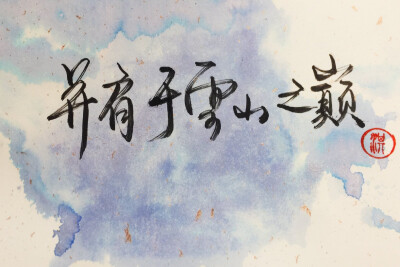 并肩于雪山之巅